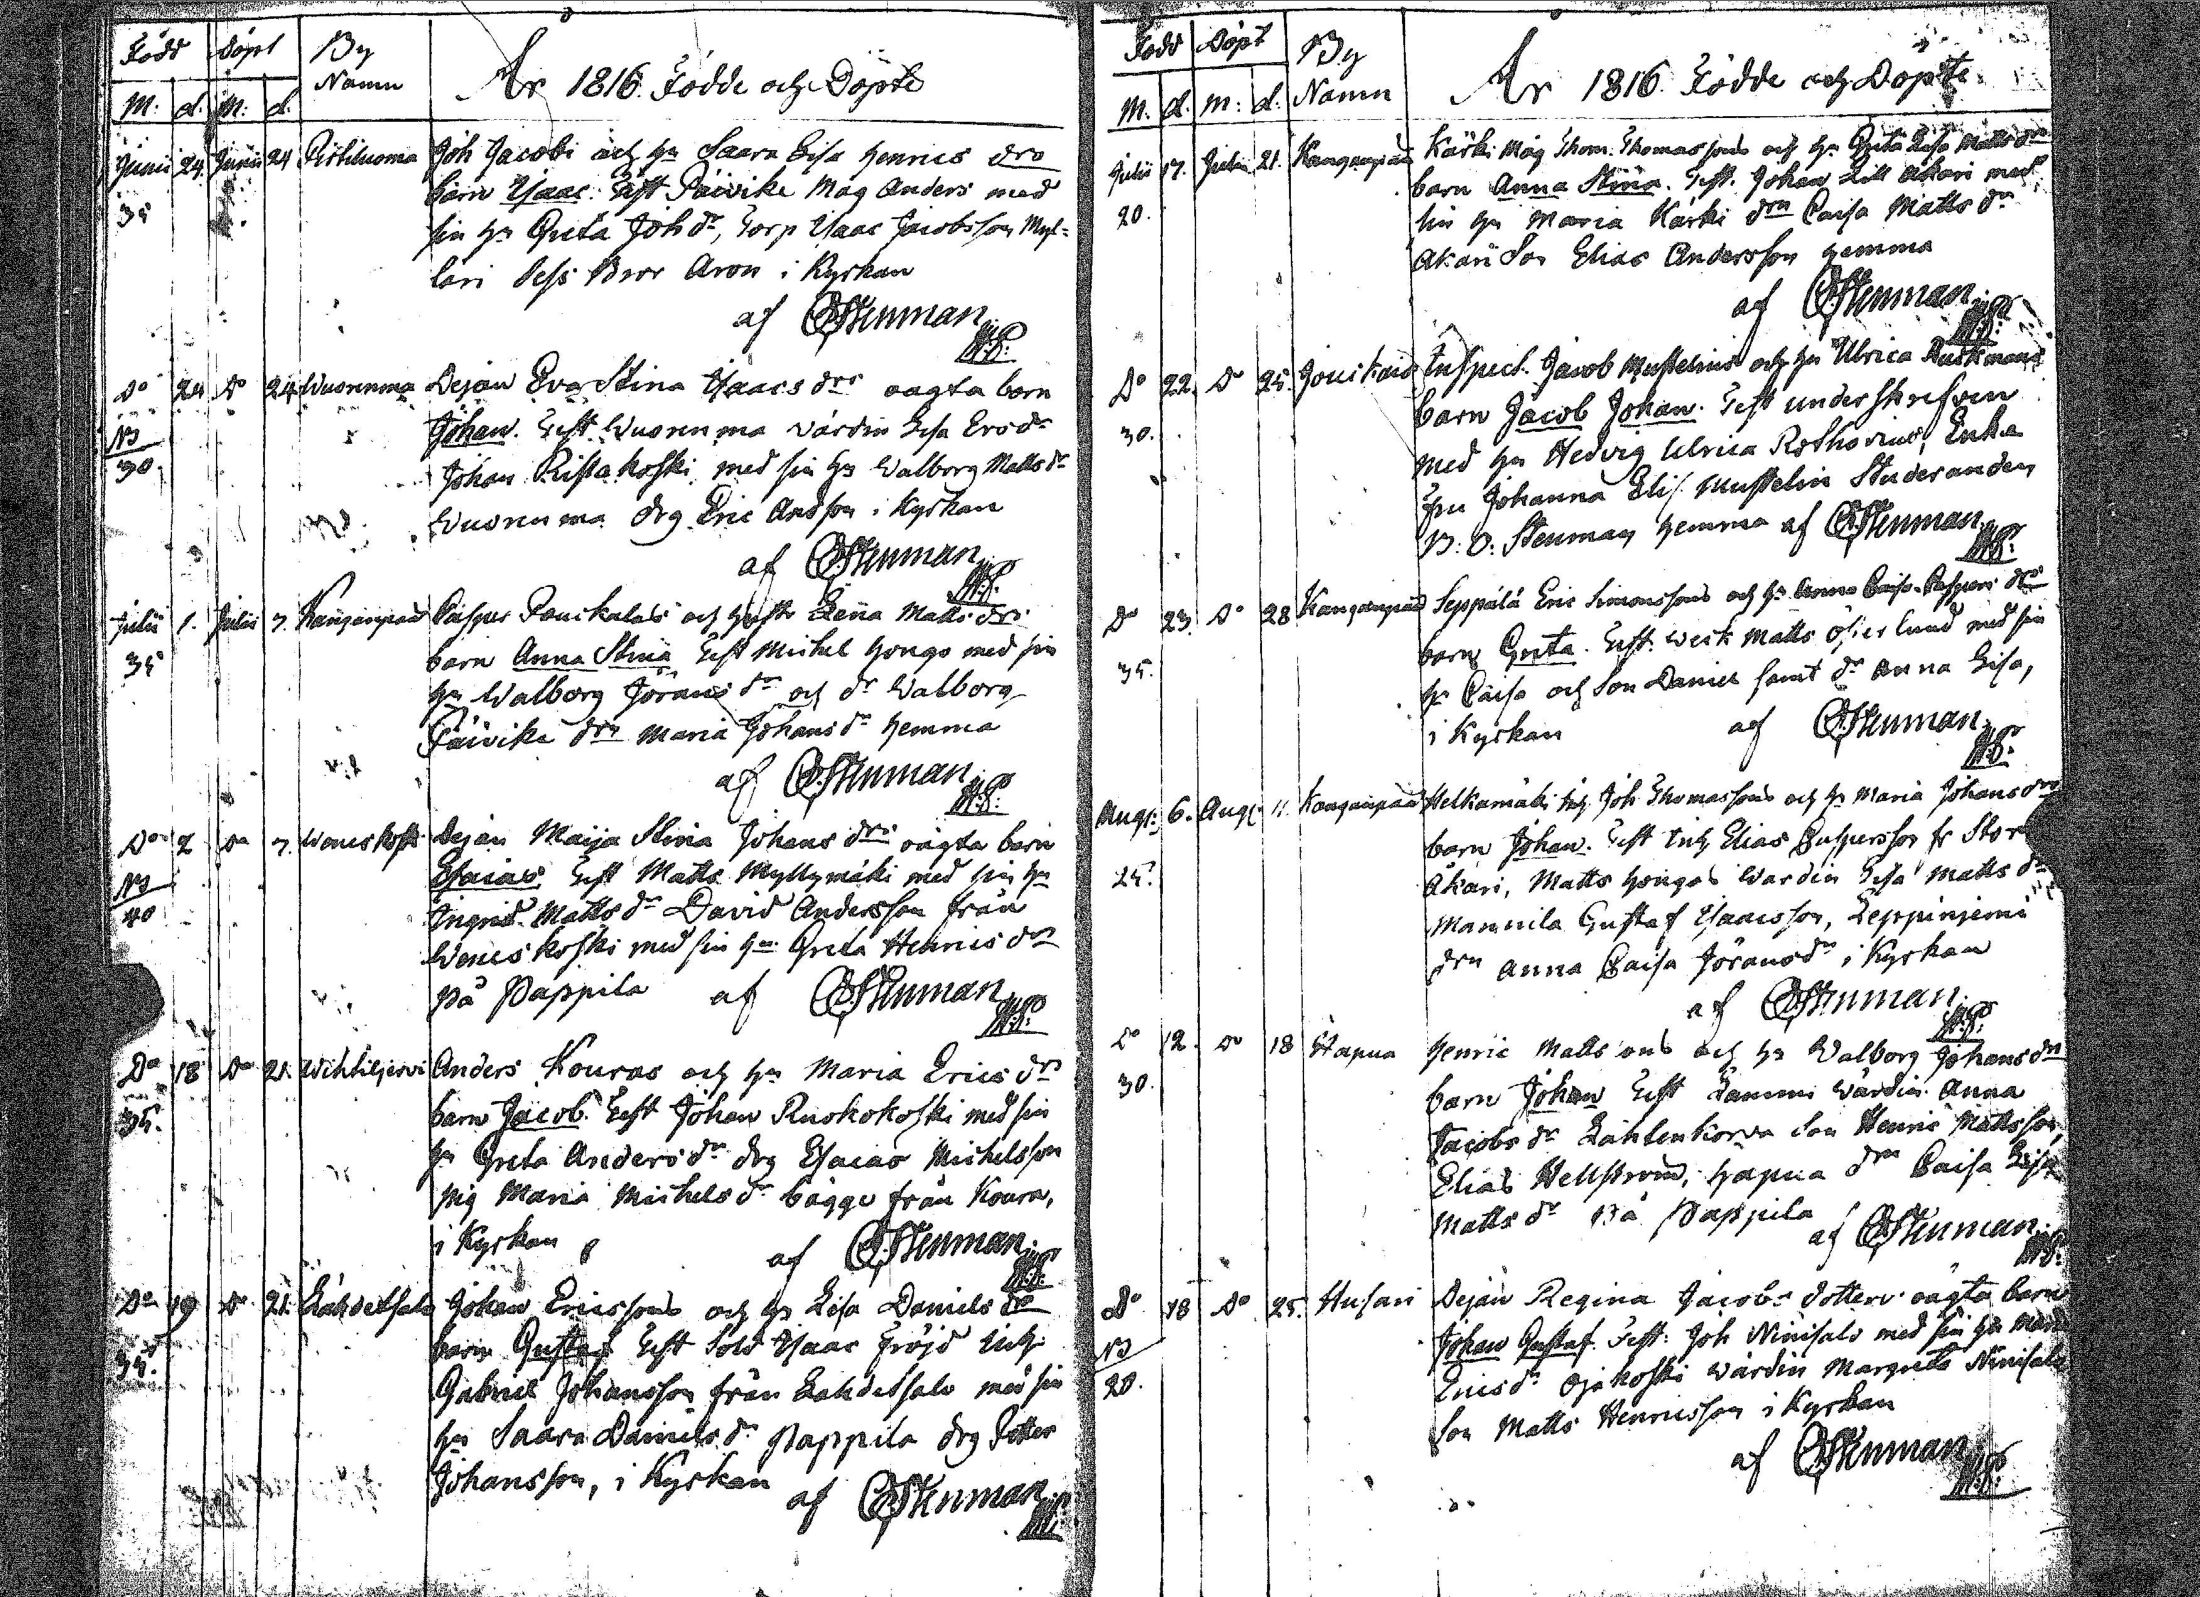 Född Döpt By Namn
År 1816. Födde och Döpte
M: d. M: d.
Junii 24. Junii 24 Ristiluoma Joh Jacobi och hu Saara Lisa Henrics drs
35 barn Isaac. Test Päivike Måg Anders med
sin hu Greta Joh dr, Torp Isaac Jacobsson Myl-
lari dess Bror Aron i Kyrkan
af CO Stenman
Do 24 Do 24 Wuorenma Dejan Eva Stina Isaacs drs oägta barn
N3 Johan. Test. Wuorenma Värdin Lisa Ersdr
30. Johan Ristakoski med sin hu Walborg Matts dr
Wuorenma drg Eric Andsson i Kyrkan
af CO Stenman
Julii 1. Julii 7. Kanganpää Casper Pouskalas och hustr Lena Matts drs
35 barn Anna Stina Test Michel Hongo med sin
hu Walborg Jörans dr och dr Walborg
Päivike drn Maria Johans dr hemma
af CO Stenman
Do 2 Do 7. Dejan Maija Stina Johans drs oägta barn
N3 Esaias Test Matts Myllymäki med sin hu
40 Ingrid Matts dr David Andersson från
Weneskoski med sin hu Greta Henrics dr
på Pappila af CO Stenman
Do 18 Do 21. Wihteljervi Anders Kouras och hu Maria Erics drs
35. barn Jacob. Test Johan Ruokokoski med sin
hu Greta Anders dr drg Esaias Michelsson
pig Maria Michels dr bägge från Koura,
i Kyrkan af CO Stenman
Do 19 Do 21. Lähdetsalo Johan Ericssons och hu Lisa Daniels drs
35. barn Gustaf Test Sold Isaac Fröjd Inh.
Gabriel Johansson från Lähdetsalo med sin
hu Saara Daniels dr Pappila drg Petter
Johansson, i Kyrkan af CO Stenman
Född Döpt By Namn
År 1816. Födde och Döpte
M. d. M: d.
Julii 17. Julii 21. Kanganpää Kärki Måg Thom. Thomassons och hu Greta Lisa Matts dr
20. barn Anna Stina. Test. Johan Lill Akari med
sin hu Maria Kärki drn Caisa Matts dr
Akari Son Elias Andersson hemma
af CO Stenman
Do 22. Do 25. Inspect. Jacob Mustelins och hu Ulrica
30. barn Jacob Johan. Test underskrefven
med hu Hedvig Ulrica Rothovius, Enka
Fru Johanna Elis. Mustelin Studeranden
B: O: Stenman hemma af CO Stenman
Do 23. Do 28 Kanganpää Seppälä Eric Simonssons och hu Anna Caisa Caspers drs
35. barn Greta. Test. Werk Matts Österlund med sin
hu Caisa och Son Daniel samt dr Anna Lisa,
i Kyrkan af CO Stenman
Augt: 6. Augt 11. Kanganpää Helkamäki Inh. Joh Thomassons och hu Maria Johans drs
25. barn Johan. Test Inh Elias Caspersson fr Stor
Akari, Matts Hongos Wärdin Lisa Matts dr
Mannila Gustaf Isaacsson, Leppinjemi
drn Anna Caisa Jöransdr i Kyrkan
af CO Stenman
Do 12. Do 18 Hapua Henric Mattsons och hu Walborg Johansdrs
30. barn Johan Test Lammi Wärdin Anna
Jacobs dr Lähtenkorva Son Henric Mattsson,
Elias Hellström, Hapua drn Caisa Lisa
Matts dr På Pappila af CO Stenman
Do 18 Do 25. Husari Dejan Regina Jacobs dotters oägta barn
N3 Johan Gustaf. Test: Joh Niinisalo med sin hu Maria
20. Ericsdr Ojakoski Wärdin Margreta Niinisalo
Son Matts Henricsson i Kyrkan
af CO Stenman